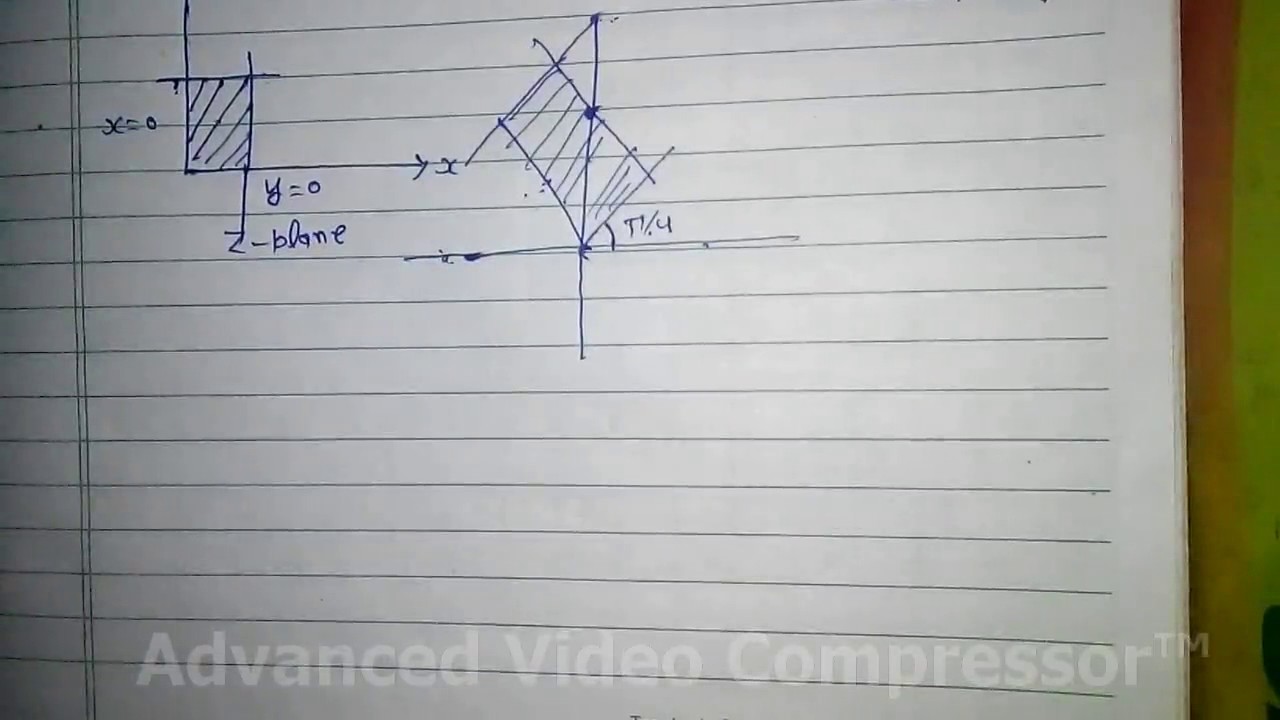 x=0
x
y=0
π/4
Z-plane
Advanced Video Compressor™